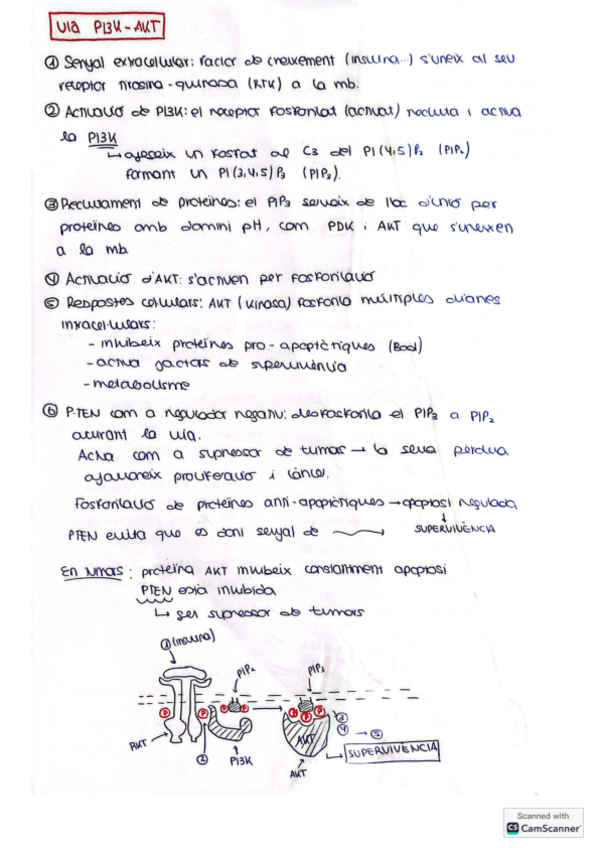 VIA PI3K-AKT
① Senyal extracel·lular: factor de creixement (insulina...) s'uneix al seu
receptor tirosina-quinasa (RTK) a la mb.
② Activació de PI3K: el receptor fosforilat (activat) recluta i activa
la PI3K
↳ afegeix un fosfat al C3 del PI(4,5)P₂ (PIP₂)
formant un PI(3,4,5)P₃ (PIP₃).
③ Reclutament de proteïnes: el PIP₃ serveix de lloc d'unió per
proteïnes amb domini pH, com PDK i AKT que s'uneixen
a la mb.
④ Activació d'AKT: s'activen per fosforilació
⑤ Respostes cel·lulars: AKT (kinasa) fosforila múltiples dianes
intracel·lulars:
- inhibeix proteïnes pro-apoptòtiques (Bad)
- activa factors de supervivència
- metabolisme
⑥ P-TEN com a regulador negatiu: desfosforila el PIP₃ a PIP₂
aturant la via.
Actua com a supressor de tumors → la seva pèrdua
afavoreix proliferació i càncer.
Fosforilació de proteïnes anti-apoptòtiques → apoptosi regulada
↓
PTEN evita que es doni senyal de → SUPERVIVÈNCIA
En tumors: proteïna AKT inhibeix constantment apoptosi
PTEN està inhibida
↳ gen supressor de tumors
① (insulina)
PIP₂
PIP₃
P
P
P
P
P
P
P
③
④ → ⑤
AKT
RKT
②
PI3K
AKT
SUPERVIVÈNCIA
Scanned with
CS CamScanner